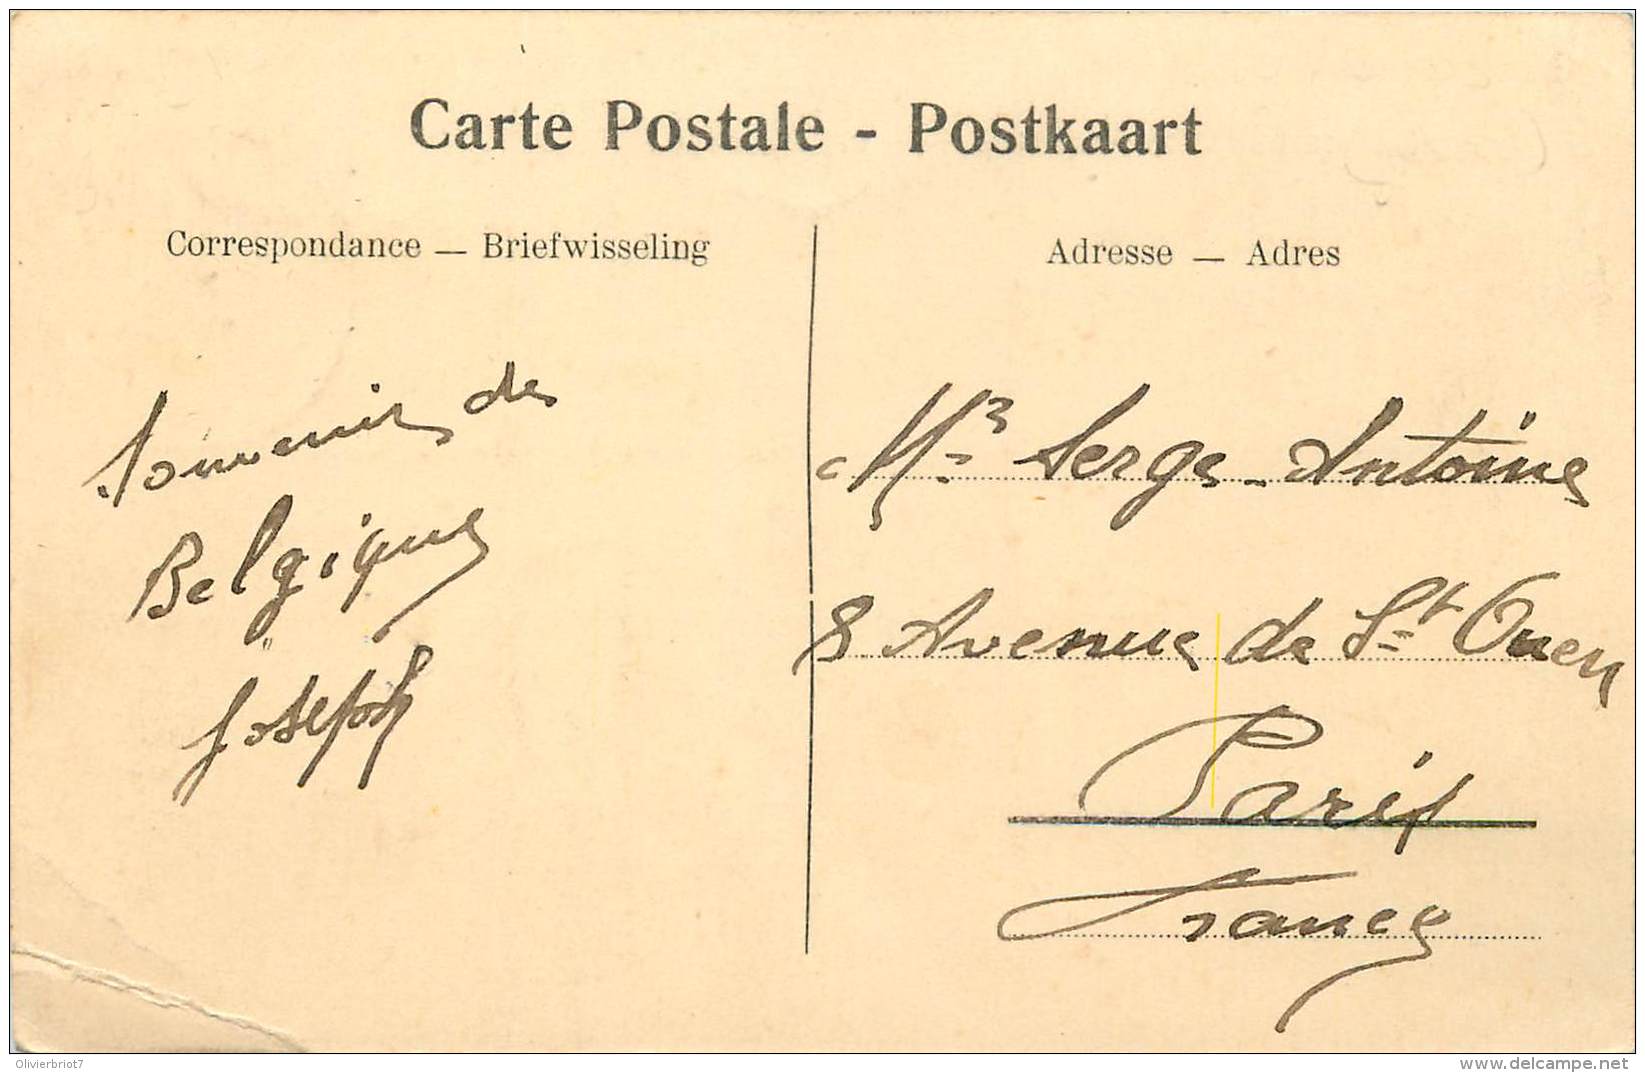 Carte Postale - Postkaart
Correspondance — Briefwisseling
Adresse — Adres
Souvenir de
Belgique
Joseph
Mr Serge Antoine
8 Avenue de St Ouen
Paris
France
Olivierbriot7
delcampe.net